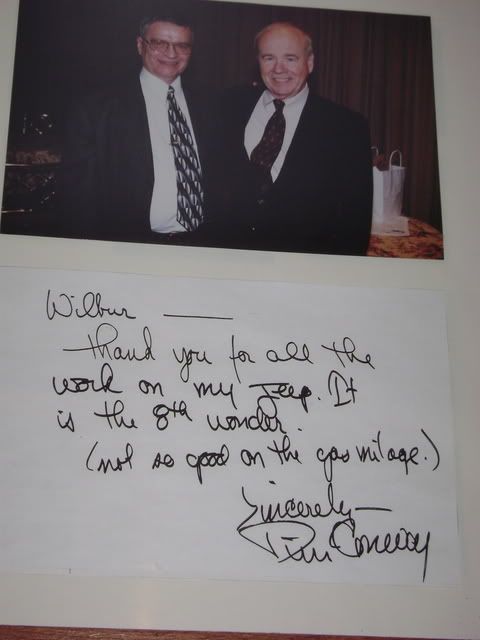 Wilbur —
thank you for all the
work on my Jeep. It
is the 8th wonder.
(not so good on the gas milage.)
Sincerely —
Tim Conway